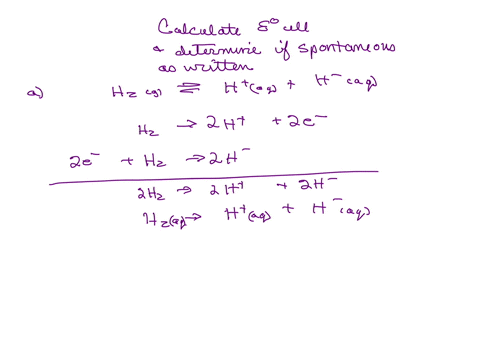 Calculate ℰ° cell
& determine if spontaneous
as written
a) H₂(g) ⇌ H⁺(aq) + H⁻(aq)
H₂ → 2H⁺ + 2e⁻
2e⁻ + H₂ → 2H⁻
2H₂ → 2H⁺ + 2H⁻
H₂(aq) → H⁺(aq) + H⁻(aq)